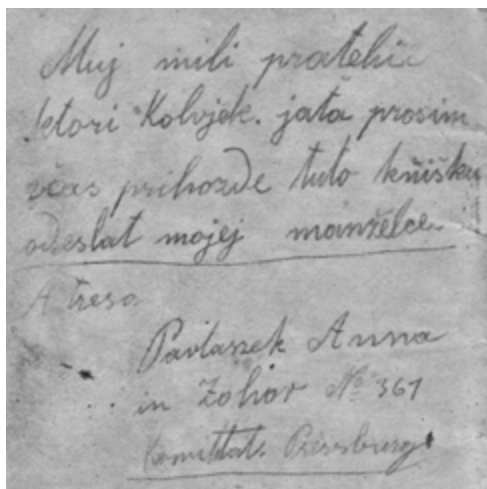 Muj mili prateku
ktori Kolvjek. jata prosim
včas prihozďe tuto kňišku
odeslat mojej manželce
Atresa
Pavlaszek Anna
in Zohor № 361
Komittat. Pressburg